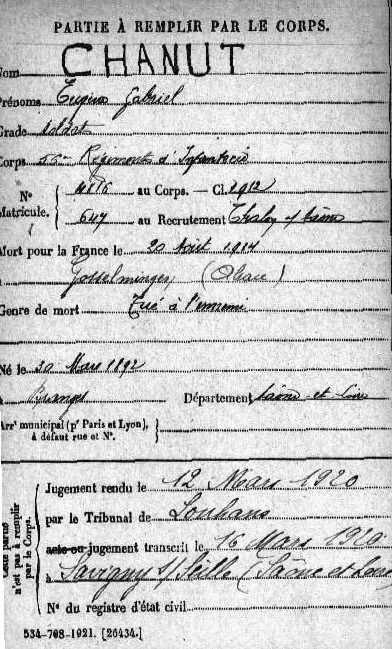 PARTIE À REMPLIR PAR LE CORPS.
Nom CHANUT
Prénoms Eugène Gabriel
Grade soldat
Corps 56me Régiment d'Infanterie
N° 4816 au Corps. — Cl. 1912
Matricule. 647 au Recrutement Chalon s/ Saône
Mort pour la France le 20 Août 1914
à Gosselmingen (Alsace)
Genre de mort Tué à l'ennemi
Né le 30 Mars 1892
à Branges Département Saône-et-Loire
Arrt municipal (pr Paris et Lyon),
à défaut rue et N°.
Cette partie
n'est pas à remplir
par le Corps.
Jugement rendu le 12 Mars 1920
par le Tribunal de Louhans
acte ou jugement transcrit le 16 Mars 1920
à Savigny s/ Seille (Saône et Loire)
N° du registre d'état civil
534-708-1921. [26434.]